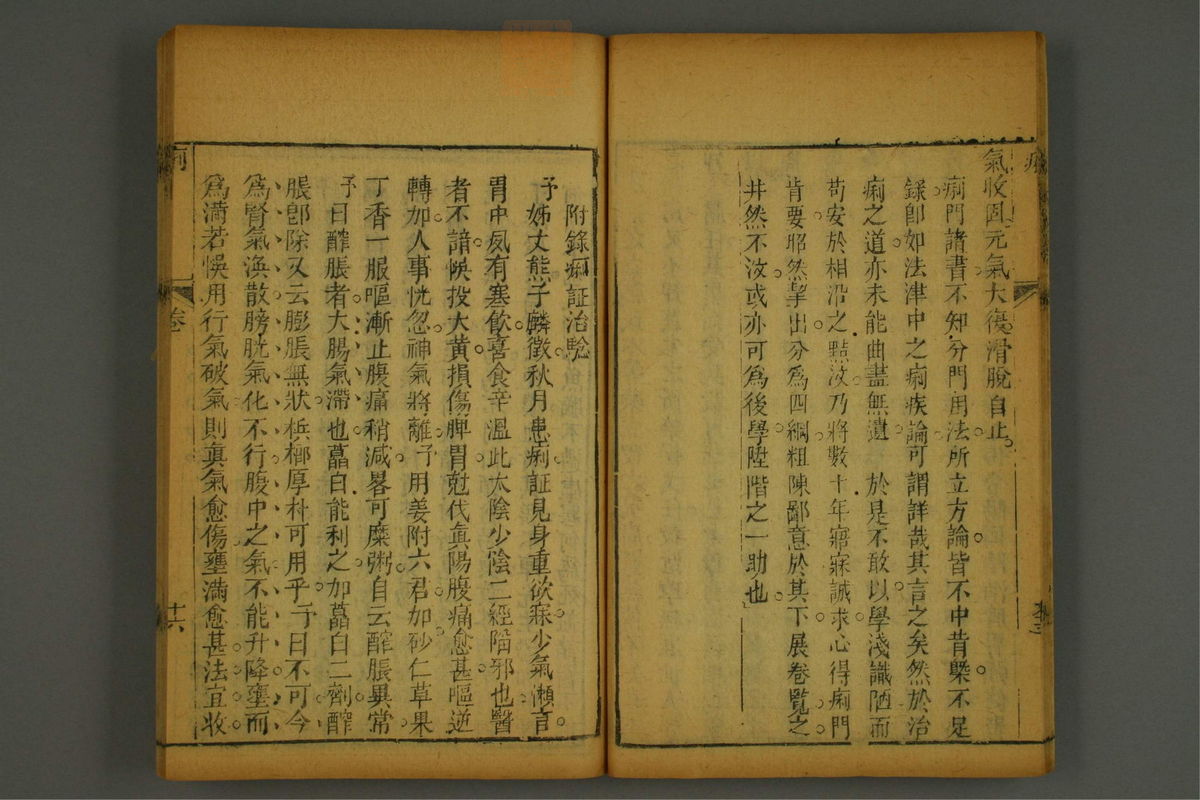 氣收固元氣大復滑脫自止
痢門諸書不知分門用法所立方論皆不中昔槩不足
錄卽如法津中之痢疾論可謂詳哉其言之矣然於治
痢之道亦未能曲盡無遺 於是不敢以學淺識陋而
苟安於相沿之㸃汝乃將數十年寤寐誠求心得痢門
肯要昭然挈出分爲四綱粗陳鄙意於其下展卷覽之
井然不汝或亦可爲後學陞階之一助也
附錄痢証治驗
予姊丈熊子麟徵秋月患痢証見身重欲寐少氣懶言
胃中夙有寒飲喜食辛溫此太陰少陰二經陷邪也醫
者不諳悞投大黄損傷脾胃尅伐眞陽腹痛愈甚嘔逆
轉加人事恍忽神氣將離予用姜附六君加砂仁草果
丁香一服嘔漸止腹痛稍減畧可糜粥自云醡脹異常
予曰醡脹者大腸氣滯也藠白能利之加藠白二劑醡
脹卽除又云膨脹無狀梹榔厚朴可用乎予曰不可今
爲腎氣渙散膀胱氣化不行腹中之氣不能升降壅而
爲滿若悞用行氣破氣則眞氣愈傷壅滿愈甚法宜收
卷
十六